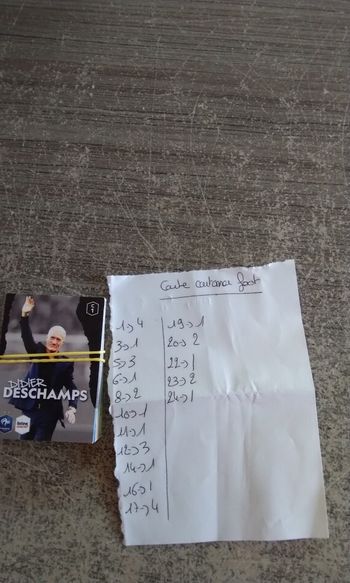 Carte carrefour foot
1→4
3→1
5→3
6→1
8→2
10→1
11→1
12→3
14→1
16→1
17→4
19→1
20→2
22→1
23→2
24→1
C
1
DIDIER
DESCHAMPS